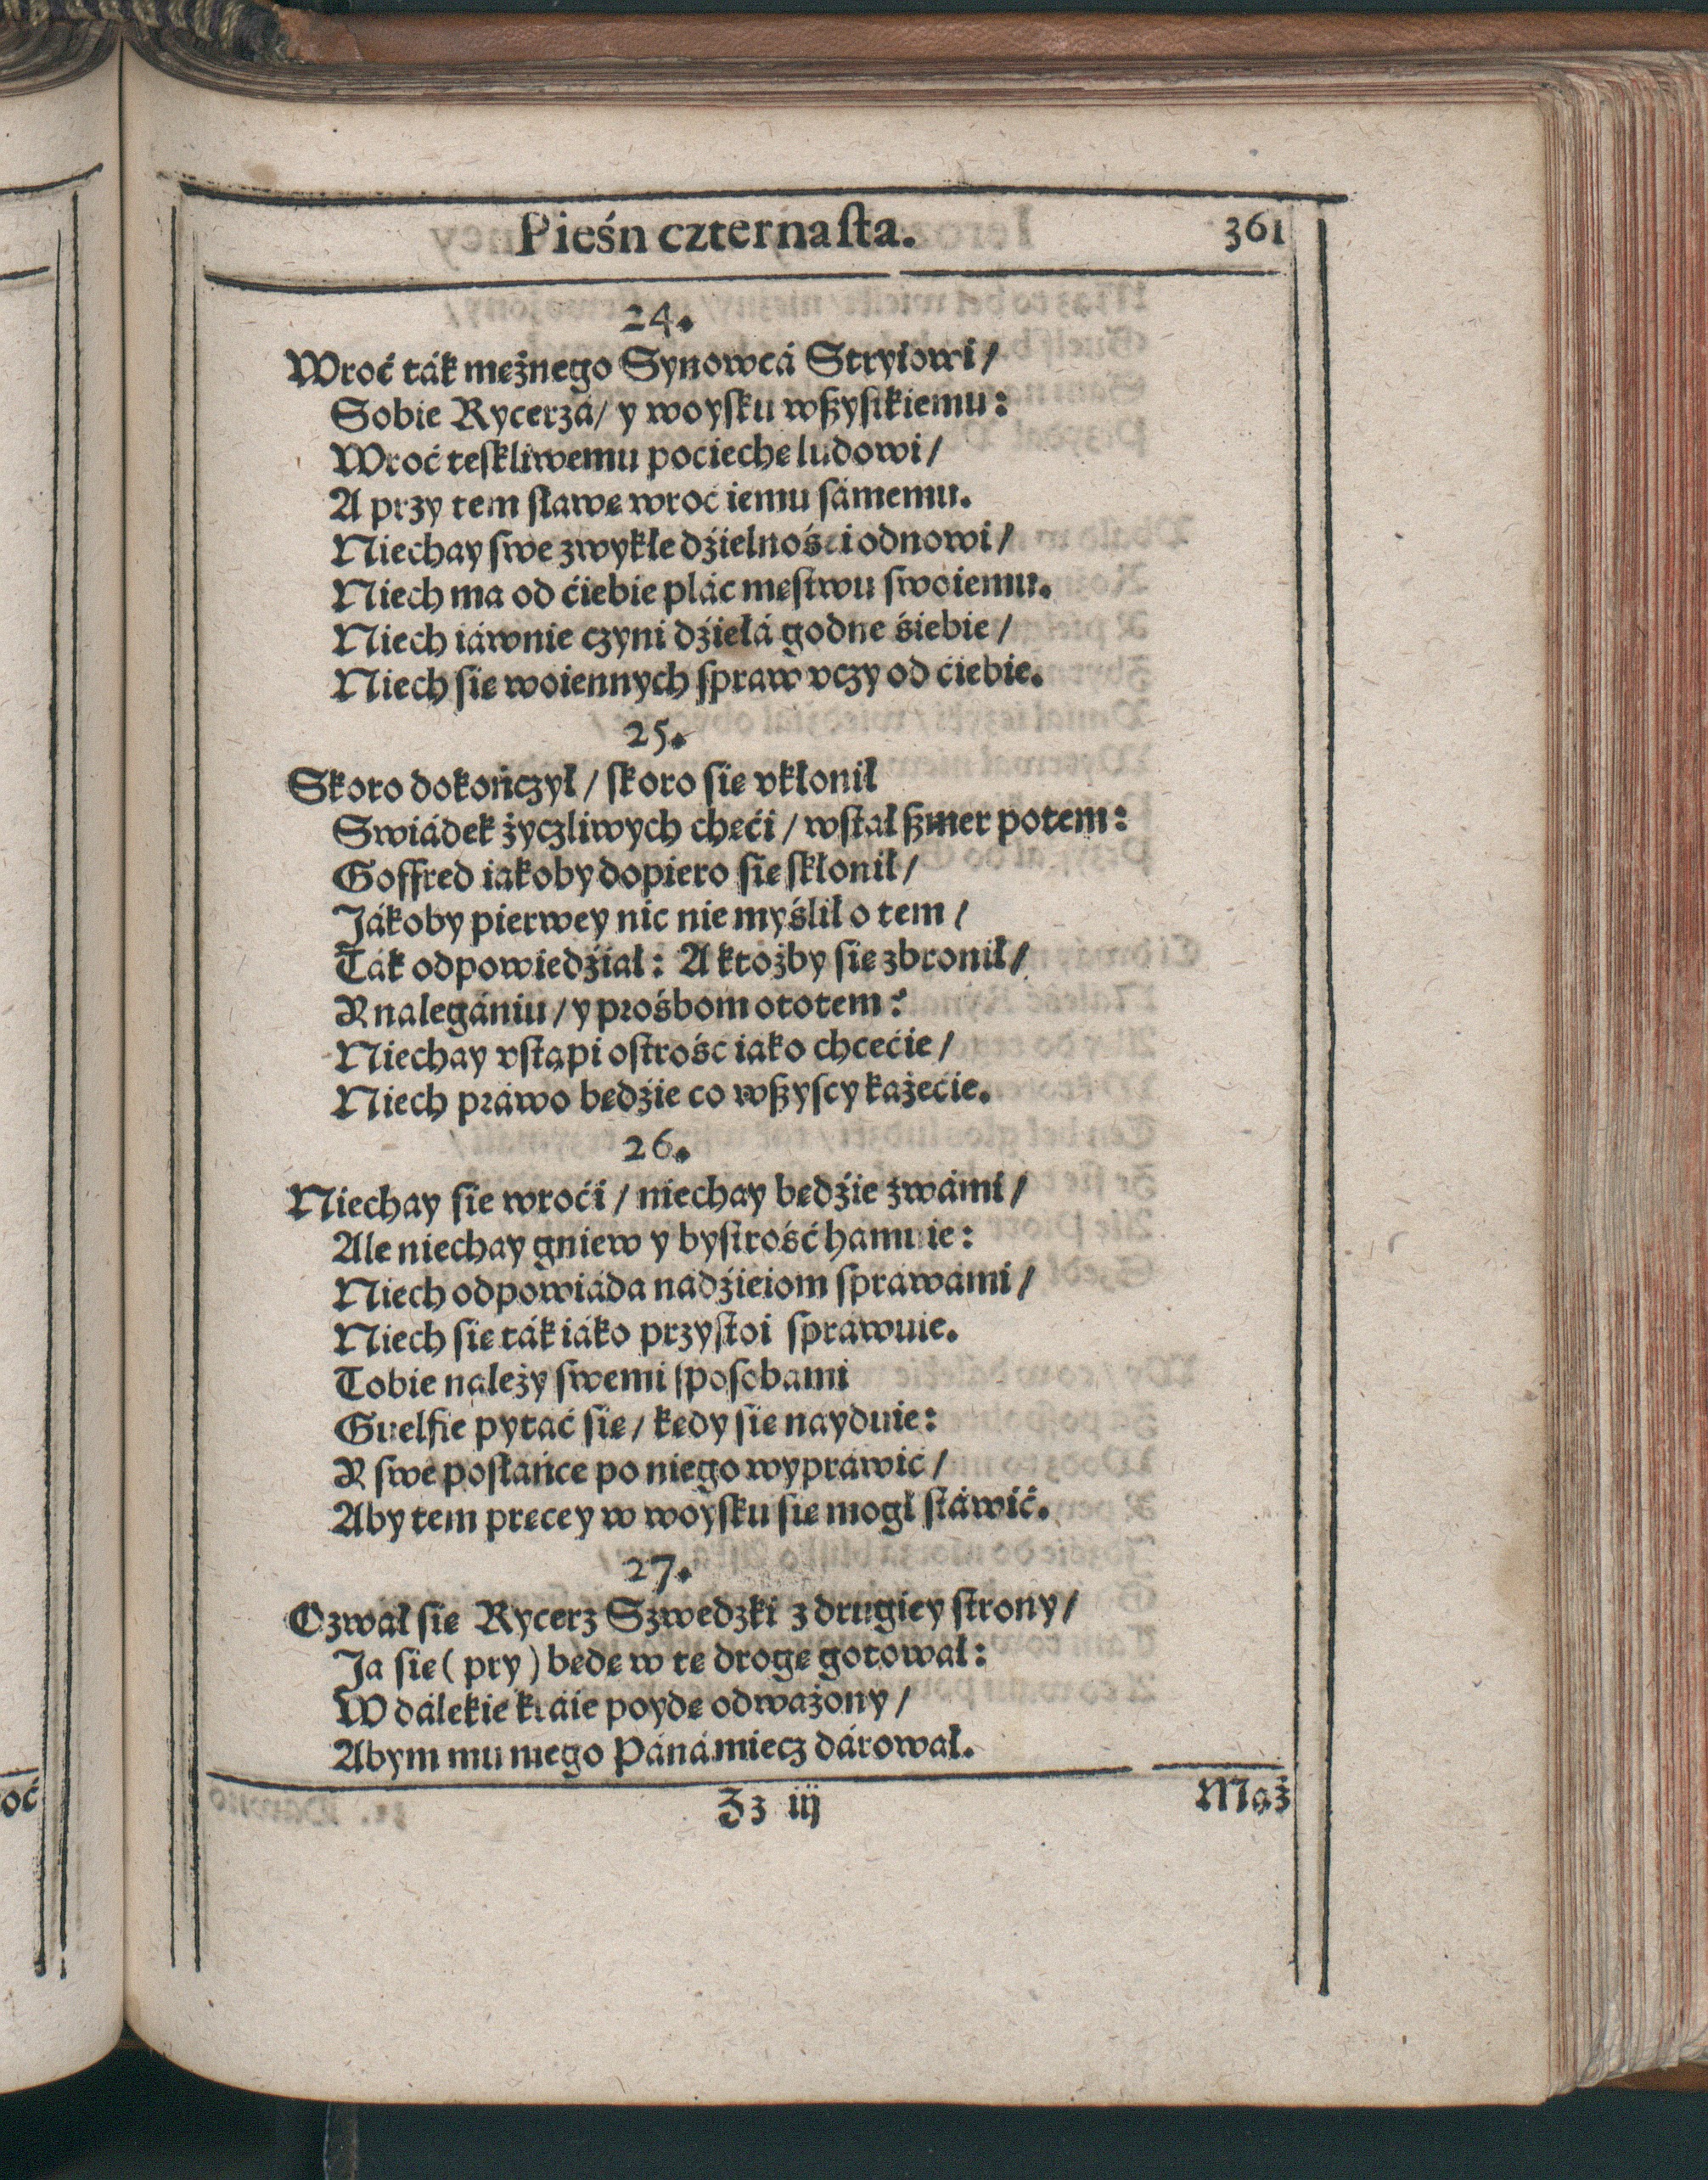 Pieśń czternaſta.
361
24.
Wroć ták mężnego Synowcá Stryiowi/
Sobie Rycerzá/ y woyſku wßyſtkiemu:
Wroć teſkliwemu pociechę ludowi/
A przy tem ſławę wroć iemu ſámemu.
Niechay ſwe zwykłe dźielnośći odnowi/
Niech ma od ćiebie plác męſtwu ſwoiemu.
Niech iáwnie czyni dźiełá godne śiebie/
Niech ſie woiennych ſpraw vczy od ćiebie.
25.
Skoro dokończył/ ſkoro ſie vkłonił
Swiádek życzliwych chęći/ wſtał ßmer potem:
Goffred iakoby dopiero ſie ſkłonił/
Jákoby pierwey nic nie myślił o tem/
Ták odpowiedźiał: A ktożby ſie zbronił/
K nalegániu/ y prośbom o to tem:
Niechay vſtąpi oſtrość iako chcećie/
Niech práwo będźie co wßyſcy każećie.
26.
Niechay ſie wroći/ niechay będźie z wámi/
Ale niechay gniew y byſtrość hamuie:
Niech odpowiáda nádźieiom ſpráwámi/
Niech ſie ták iáko przyſtoi ſpráwuie.
Tobie należy ſwemi ſpoſobami
Guelfie pytáć ſie/ kędy ſie nayduie:
K ſwe poſłáńce po niego wypráwić/
Aby tem pręcey w woyſku ſie mogł ſtáwić.
27.
Ozwał ſie Rycerz Szwedzki z drugiey ſtrony/
Ja ſie (pry) będę w tę drogę gotował:
W dálekie kráie poydę odważony/
Abym mu mego Páná miecz dárował.
Zz iij
Mąż
oć